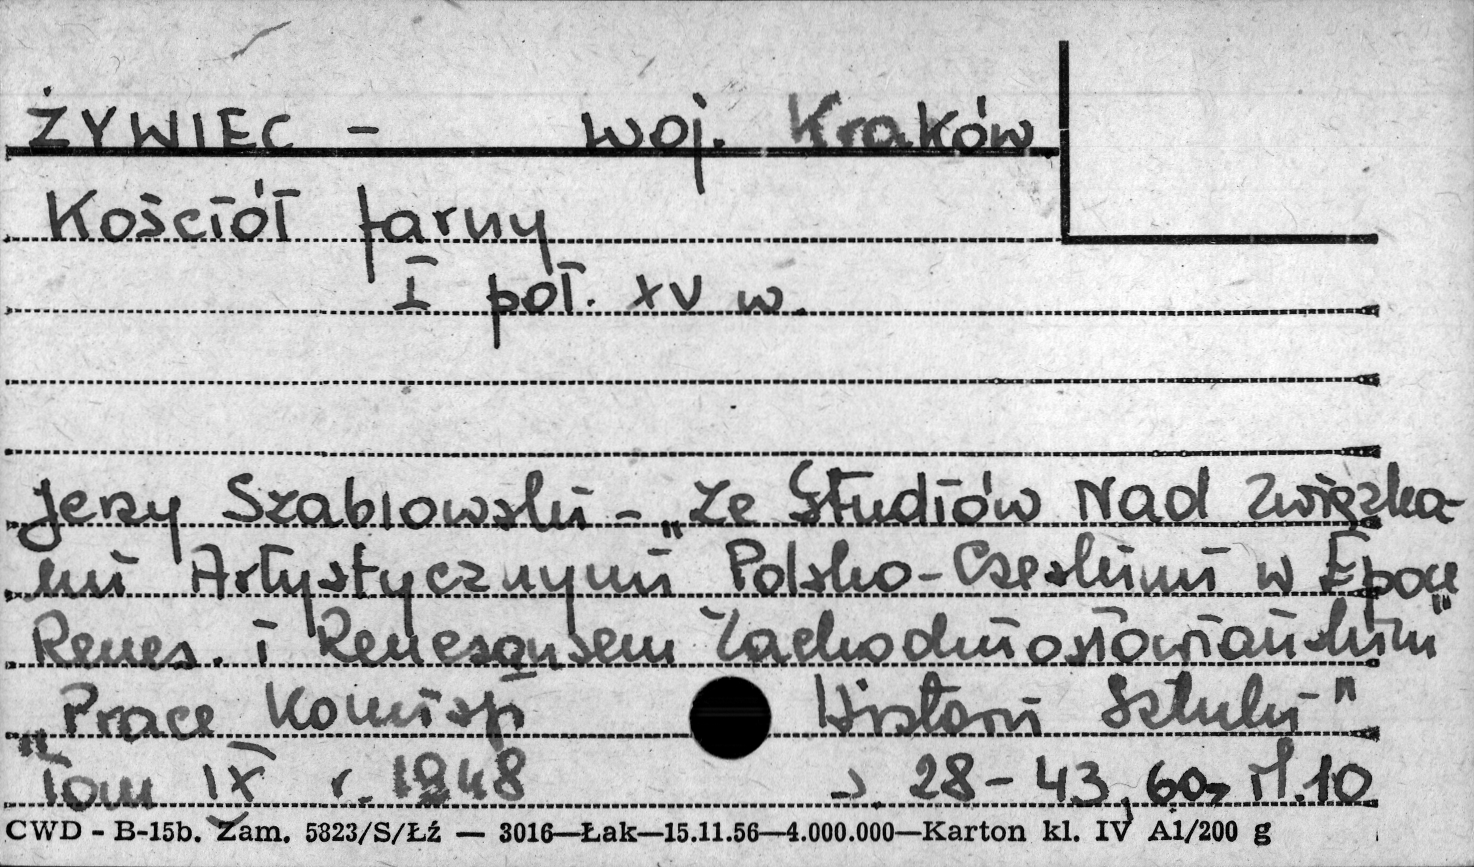 ŻYWIEC - woj. Kraków
Kościół farny
I poł. XV w.
Jerzy Szabłowski - „Ze Studiów Nad Związka-
mi Artystycznymi Polsko-Czeskimi w Epoce
Renes. i Renesansem Zachodniosłowiańskim"
„Prace Komisji Historii Sztuki"
Tom IX r. 1948 s. 28-43, 60, il. 10
CWD - B-15b. Zam. 5823/S/Łź — 3016—Łak—15.11.56—4.000.000—Karton kl. IV A1/200 g